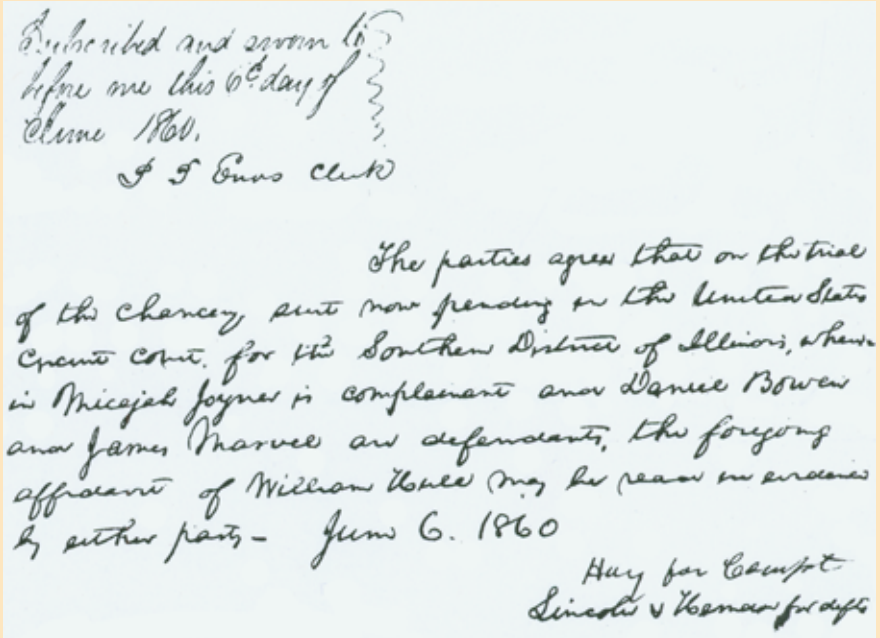 Subscribed and sworn to
before me this 6th day of
June 1860.
Clerk
The parties agree that on the trial
of the chancery suit now pending in the United States
Circuit Court, for the Southern District of Illinois, where-
in Micajah Joyner is complainant and Daniel Bowen
and James Marvel are defendants, the foregoing
affidavit of William may be read in evidence
by either party - June 6. 1860
Hay for Compt.
Lincoln & for defts